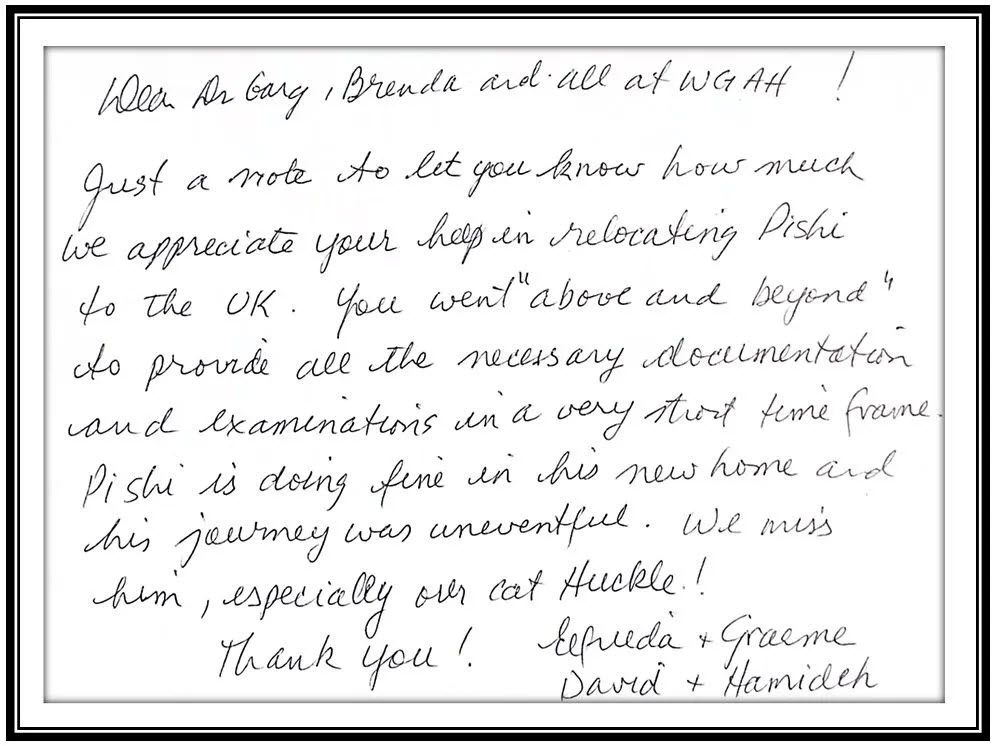 Dear Dr Garg, Brenda and all at WGAH !
Just a note to let you know how much
we appreciate your help in relocating Pishi
to the UK. You went "above and beyond"
to provide all the necessary documentation
and examinations in a very short time frame.
Pishi is doing fine in his new home and
his journey was uneventful. We miss
him, especially our cat Huckle!
Thank you! + Graeme
David + Hamideh